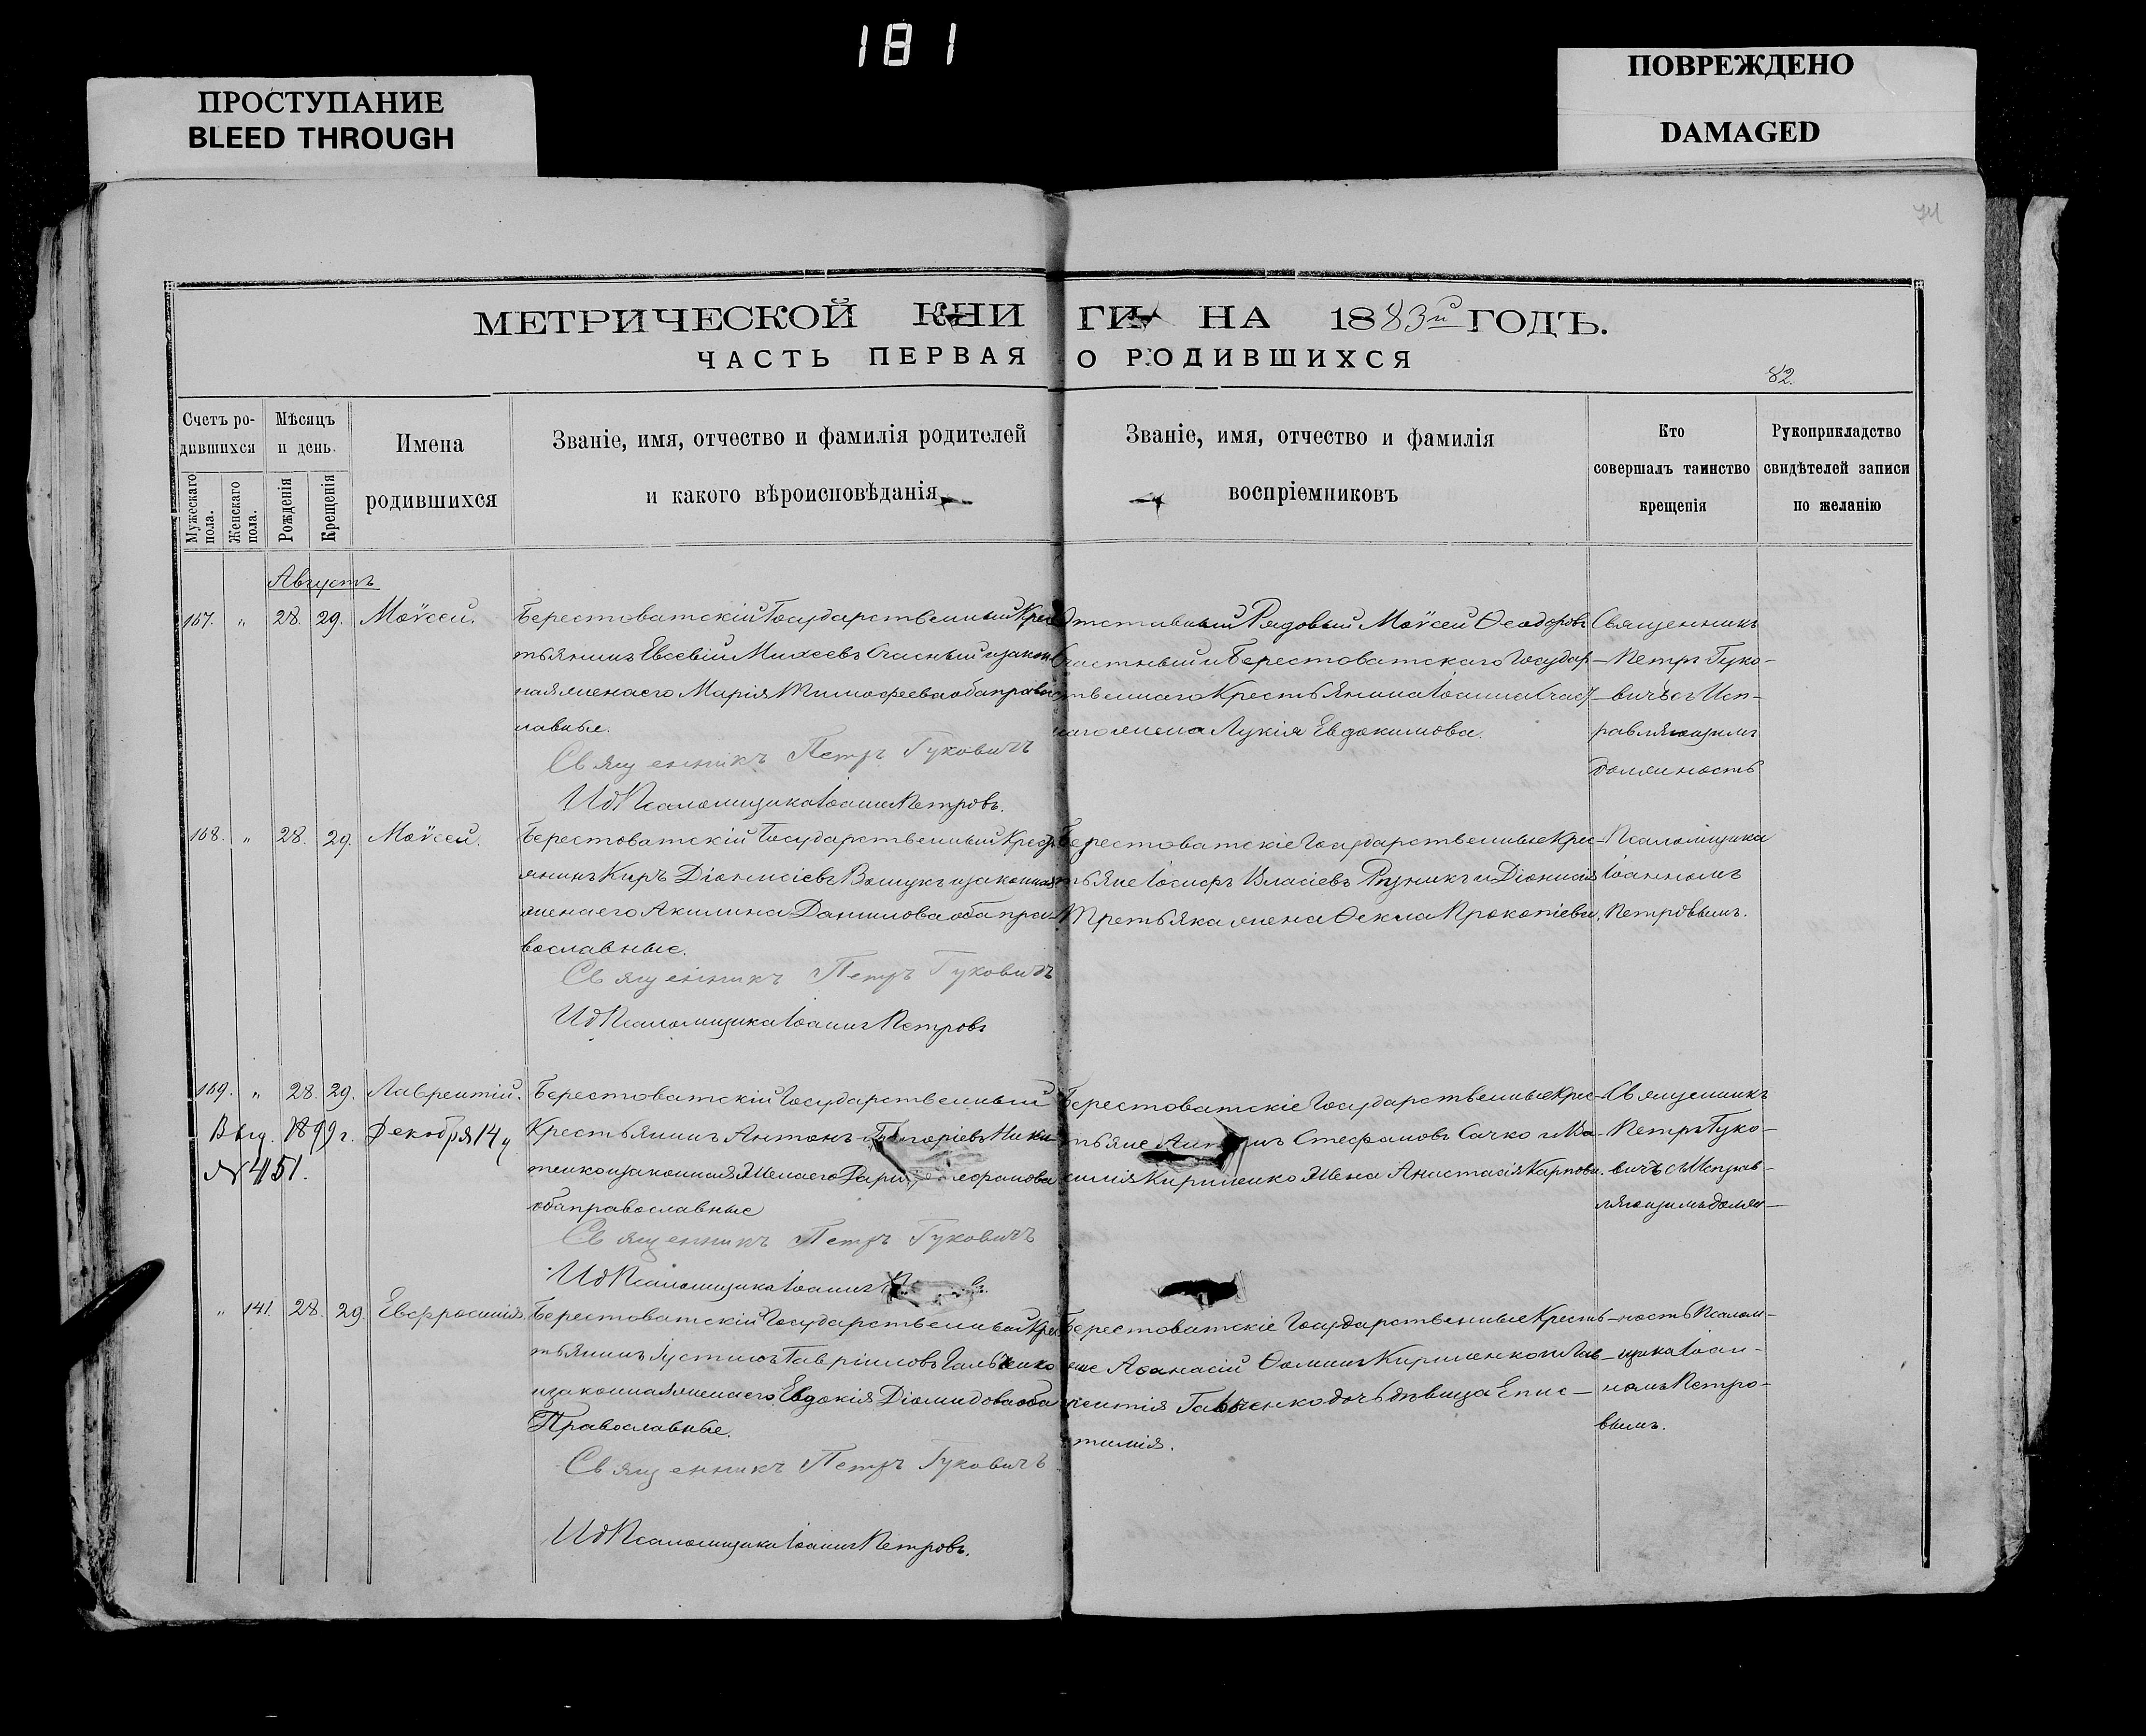 181
ПРОСТУПАНИЕ
BLEED THROUGH
ПОВРЕЖДЕНО
DAMAGED
МЕТРИЧЕСКОЙ КНИГИ НА 1883й ГОДЪ.
ЧАСТЬ ПЕРВАЯ О РОДИВШИХСЯ
82.
Счетъ родившихся
Мужескаго пола.
Женскаго пола.
Мѣсяцъ и день.
Рожденія
Крещенія
Имена родившихся
Званіе, имя, отчество и фамилія родителей
и какого вѣроисповѣданія
Званіе, имя, отчество и фамилія
воспріемниковъ
Кто
совершалъ таинство
крещенія
Рукоприкладство
свидѣтелей записи
по желанію
Августъ
167. " 28. 29. Моѵсей.
Берестоватскій Государственный Крес
тьянинъ Евсевій Михеевъ и закон
ная жена его Марія Тимофеева оба право
славные.
Священникъ Петръ Гуковичъ
И д Псаломщика Іоаннъ Петровъ.
Отставный Рядовый Моѵсей Ѳеодоровъ
и Берестоватскаго Государ-
ственнаго Крестьянина Іоанна
жена Лукія Евдокимова.
Священникъ
Петръ Гуко-
вичъ съ Исп-
равляющимъ
должность
168. " 28. 29. Моѵсей.
Берестоватскій Государственный Кресть
янинъ Киръ Діонисіевъ и законная
жена его Акилина Данилова оба пра-
вославные.
Священникъ Петръ Гуковичъ
И д Псаломщика Іоаннъ Петровъ
Берестоватскіе Государственные Крес-
тьяне Іосифъ Власіевъ и Діонисія
Третьяка жена Ѳекла Прокопіева.
Псаломщика
Іоанномъ
Петровымъ.
169. " 28. 29. Лаврентій.
Выд. 1899 г. Декабря 14 ч
№ 451.
Берестоватскій Государственный
Крестьянинъ Антонъ Григоріевъ Ники
тенко и законная жена его
оба православные
Священникъ Петръ Гуковичъ
И д Псаломщика Іоаннъ
Берестоватскіе Государственные Крес-
тьяне Стефановъ Сачко и Ма-
Кириченко жена Анастасія Карпова.
Священникъ
Петръ Гуко-
вичъ съ Исправ-
ляющимъ долж-
" 141. 28. 29. Евфросинія.
Берестоватскій Государственный Крес
тьянинъ Іустинъ Гавріиловъ
и законная жена его Евдокія Діомидова оба
Православные.
Священникъ Петръ Гуковичъ
И д Псаломщика Іоаннъ Петровъ.
Берестоватскіе Государственные Кресть-
яне Аѳанасій Ѳоминъ и Лав-
рентія дочь дѣвица Епис-
тимія.
ность Псалом-
щика Іоан-
номъ Петро-
вымъ.